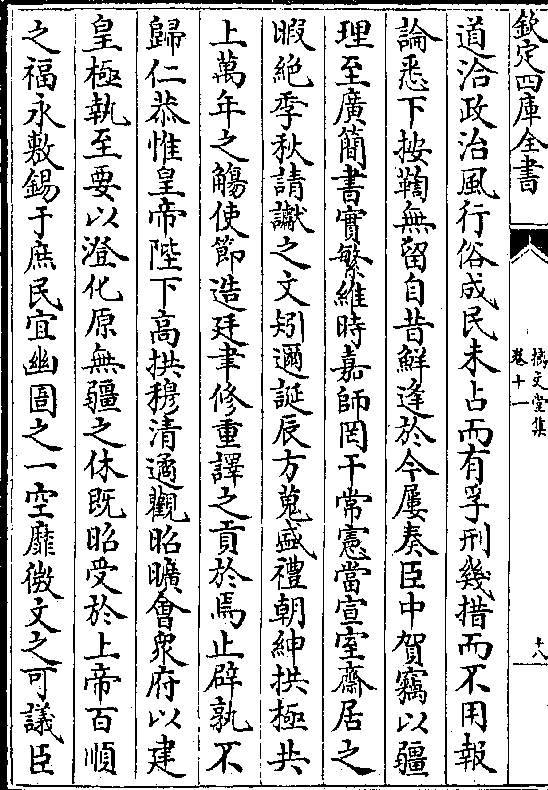 欽定四庫全書
摛文堂集
卷十一
十八
道洽政治風行俗成民未占而有孚刑幾措而不用報
論悉下按鞫無留自昔鮮逢於今屢奏臣中賀竊以疆
理至廣簡書實繁維時嘉師罔干常憲當宣室齋居之
暇絶季秋請讞之文矧邇誕辰方蒐盛禮朝紳拱極共
上萬年之觴使節造廷聿修重譯之貢於焉止辟孰不
歸仁恭惟皇帝陛下高拱穆清遹觀昭曠會衆府以建
皇極執至要以澄化原無疆之休既昭受於上帝百順
之福永敷錫于庶民宜幽圄之一空靡微文之可議臣